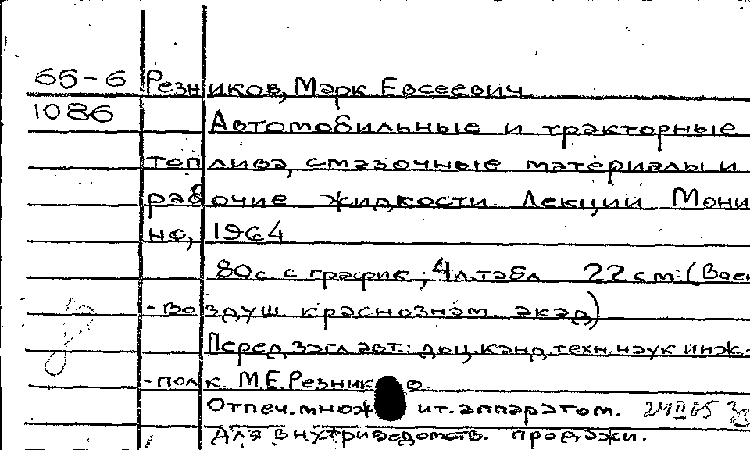 65-6 Резников, Марк Евсеевич
1086 Автомобильные и тракторные
топлива, смазочные материалы и
рабочие жидкости. Лекции Мони
но, 1964
80 с. с график.; 4 л. табл. 22 см. (Воен
-воздуш. краснознам. акад)
Перед загл. авт.: доц. канд. техн. наук инж.-
-полк. М.Е. Резников.
Отпеч. множит. аппаратом.
Для внутриведомств. продажи.